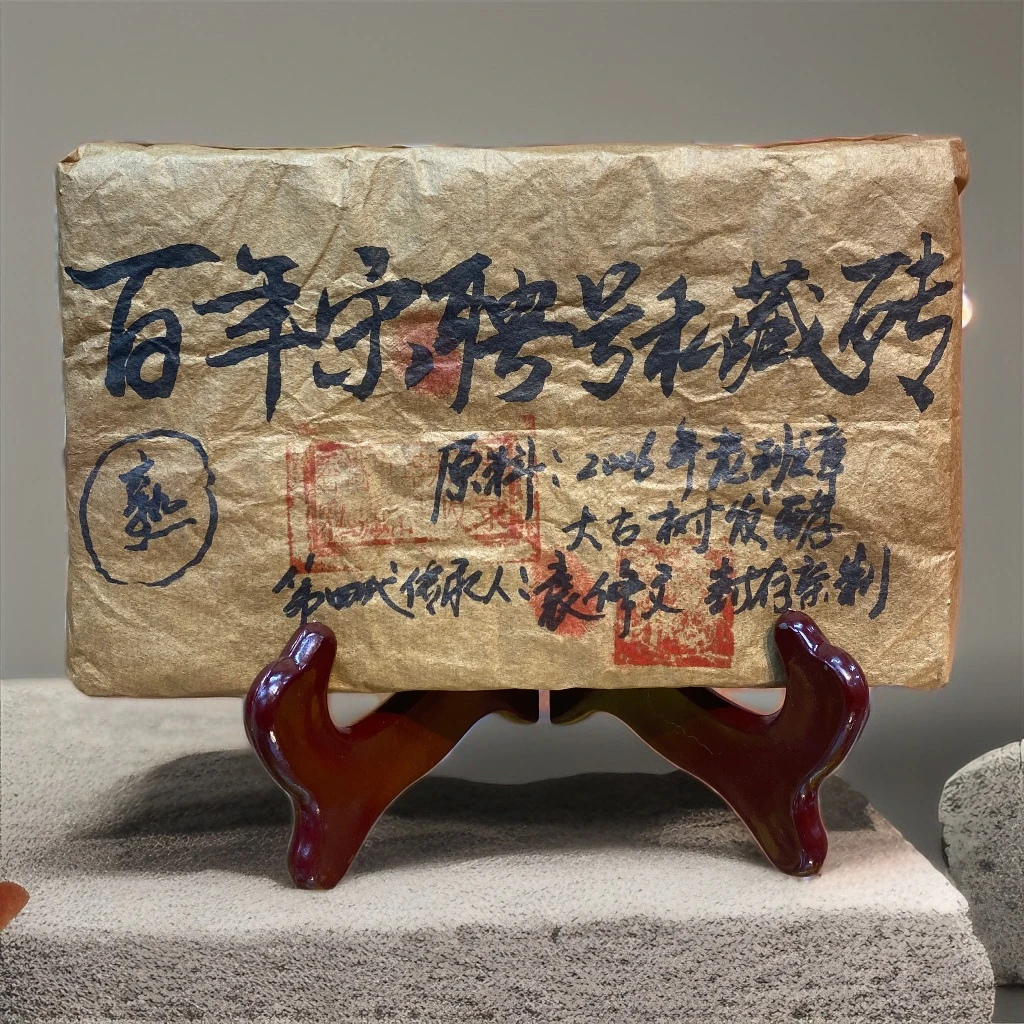 百年宋聘号私藏砖
熟
原料：2006年老班章
大古树发酵
第四代传承人：袁修文 封存亲制